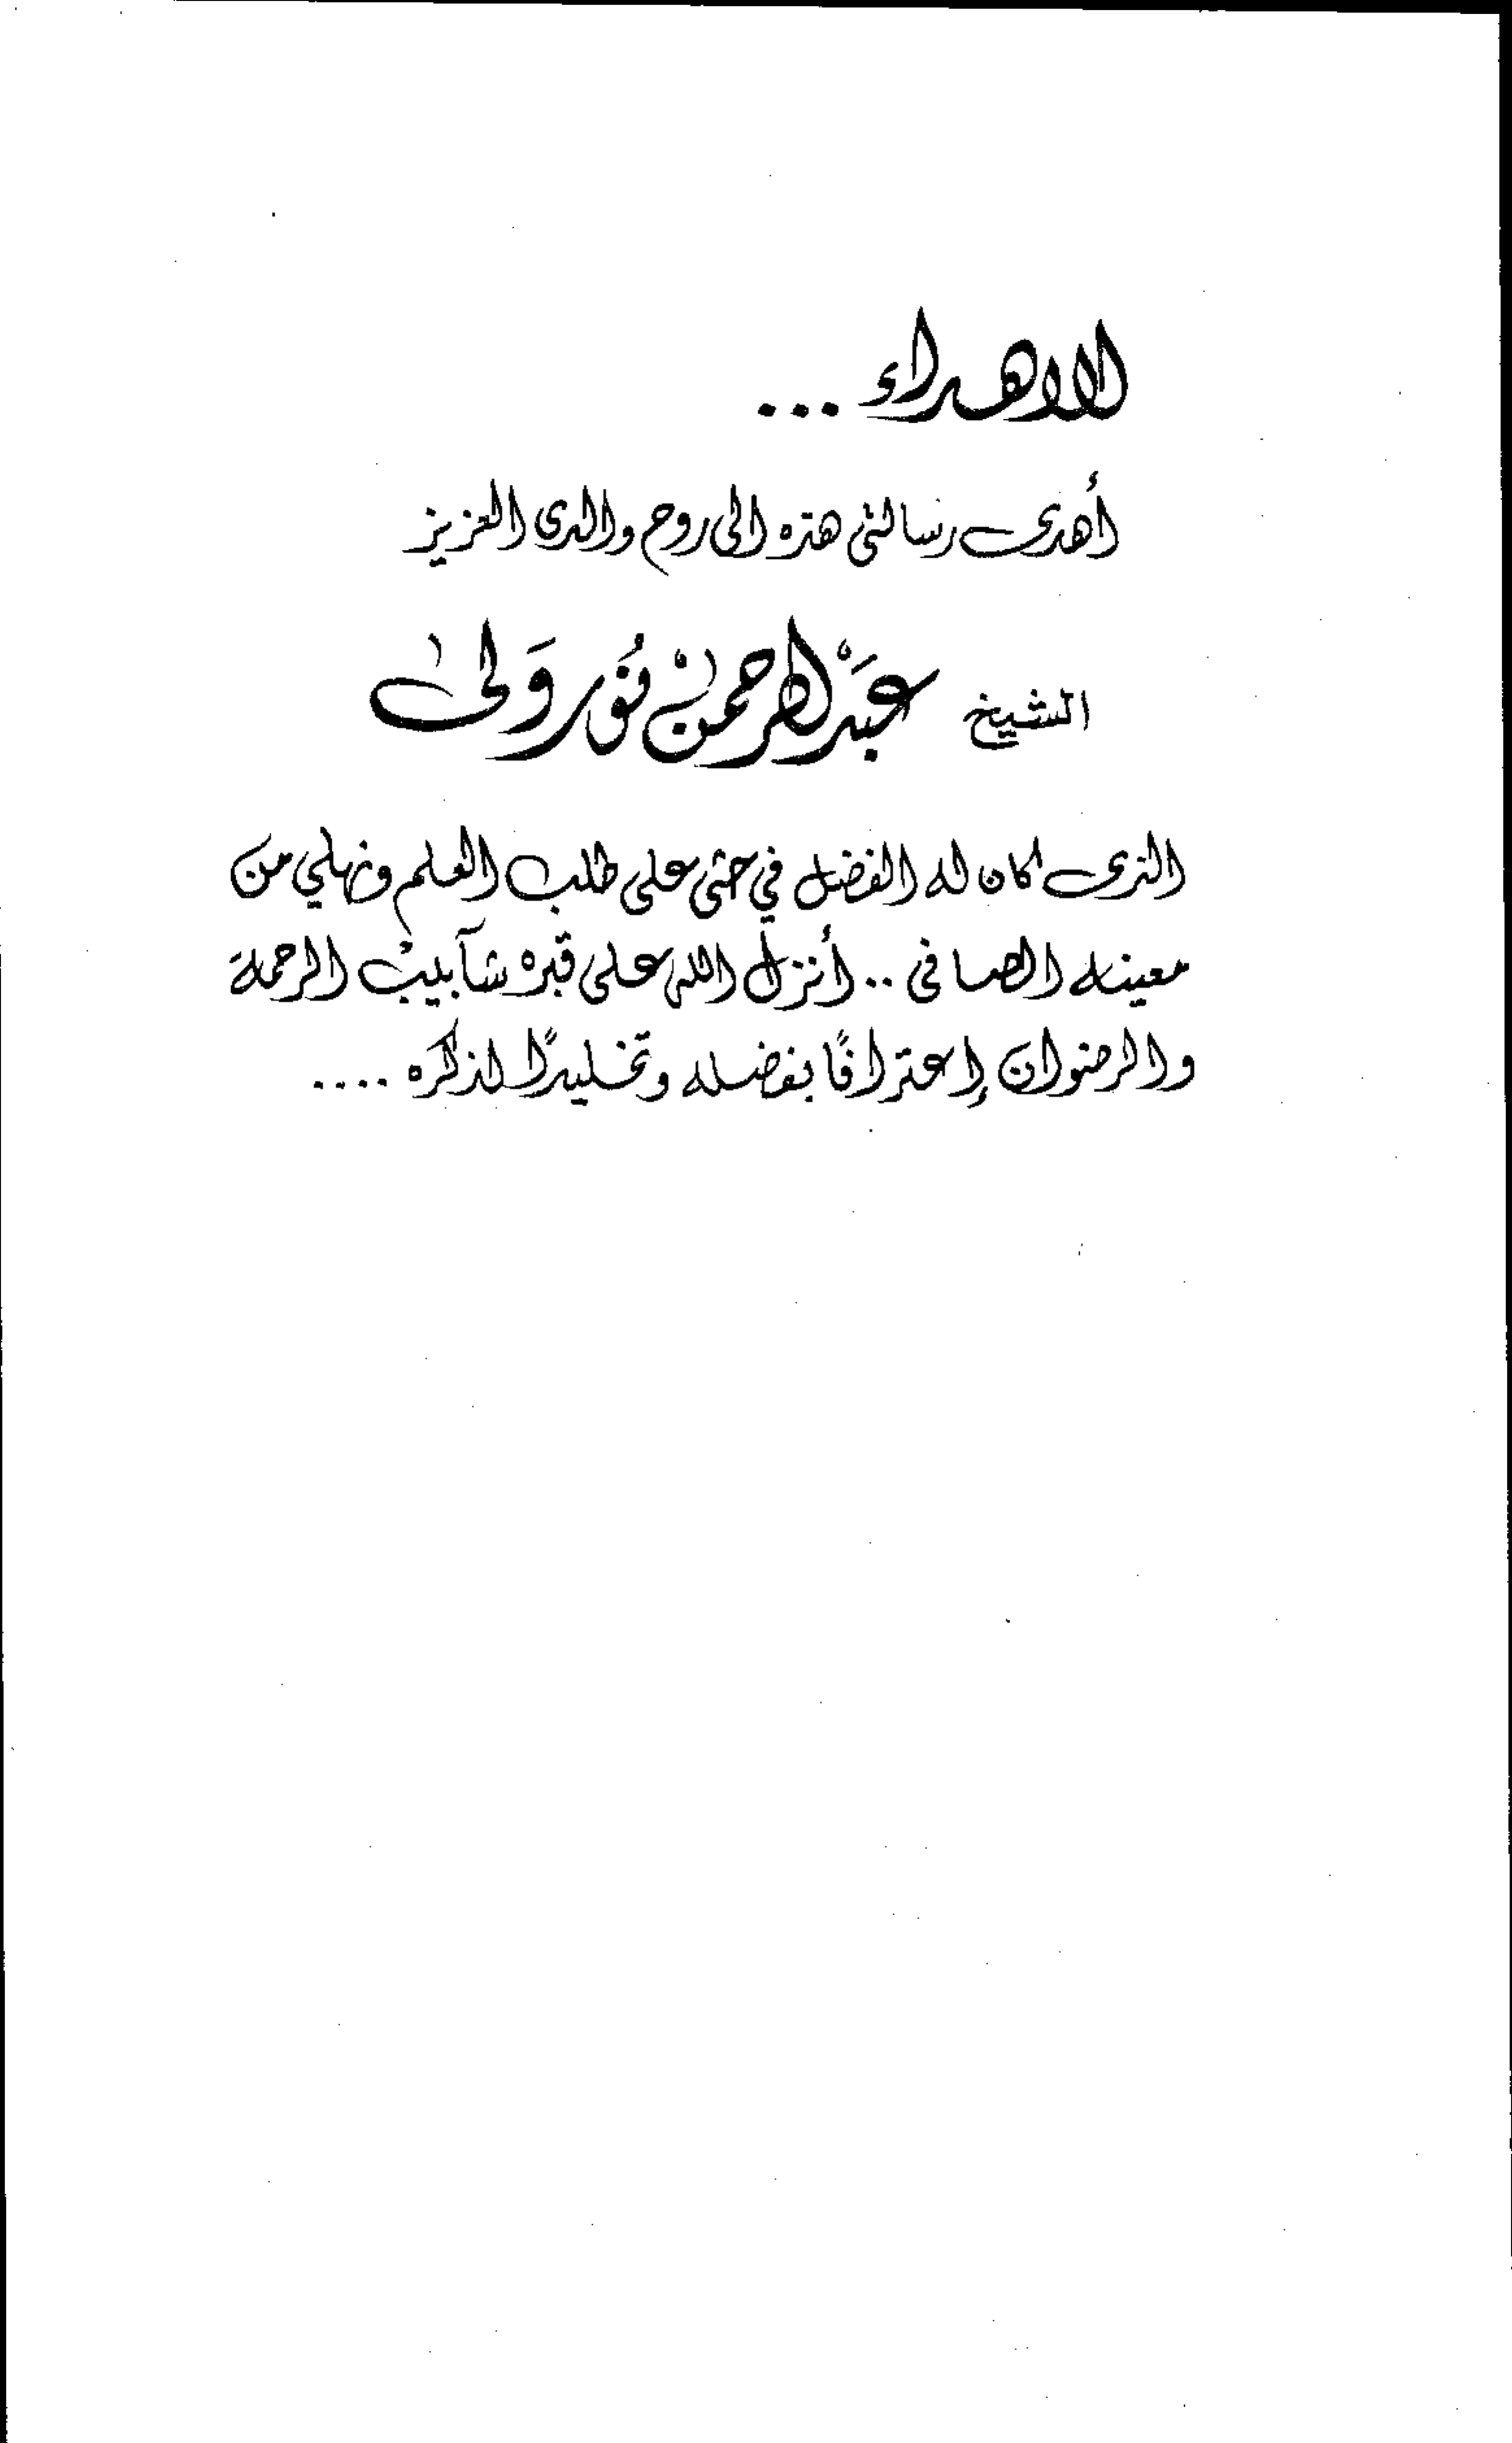 الاهداء ...
أهدى رسالتى هذه الى روح والدى العزيز
الشيخ عَبْد الرحمٰنْ نُور وَلى
الذى كان له الفضل في حثى على طلب العلم ونهلي من
معينه الصافى .. أنزل الله على قبره شآبيبْ الرحمة
والرضوان إعترافًا بفضله وتخليدًا لذكره ....